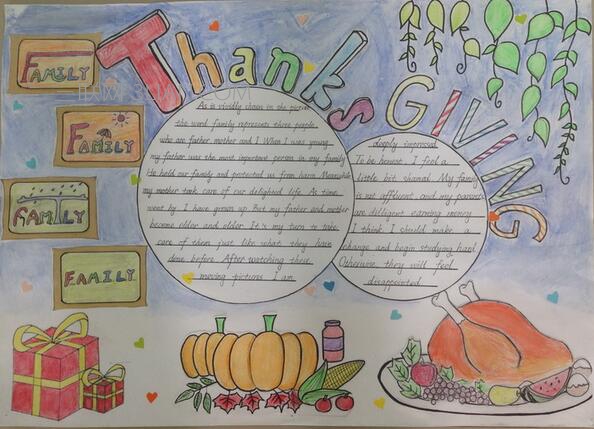 Thanks
GIVING
FAMILY
FAMILY
FAMILY
FAMILY
As is vividly shown in the picture
the word family represents three people
who are father mother and I When I was young
my father was the most important person in my family
He held our family and protected us from harm Meanwhile
my mother took care of our delightful life As time
went by I have grown up But my father and mother
become older and older It's my turn to take
care of them just like what they have
done before After watching these
moving pictures I am
deeply impressed
To be honest I feel a
little bit shamed My family
is not affluent and my parents
are diligent earning money
I think I should make a
change and begin studying hard
Otherwise they will feel
disappointed